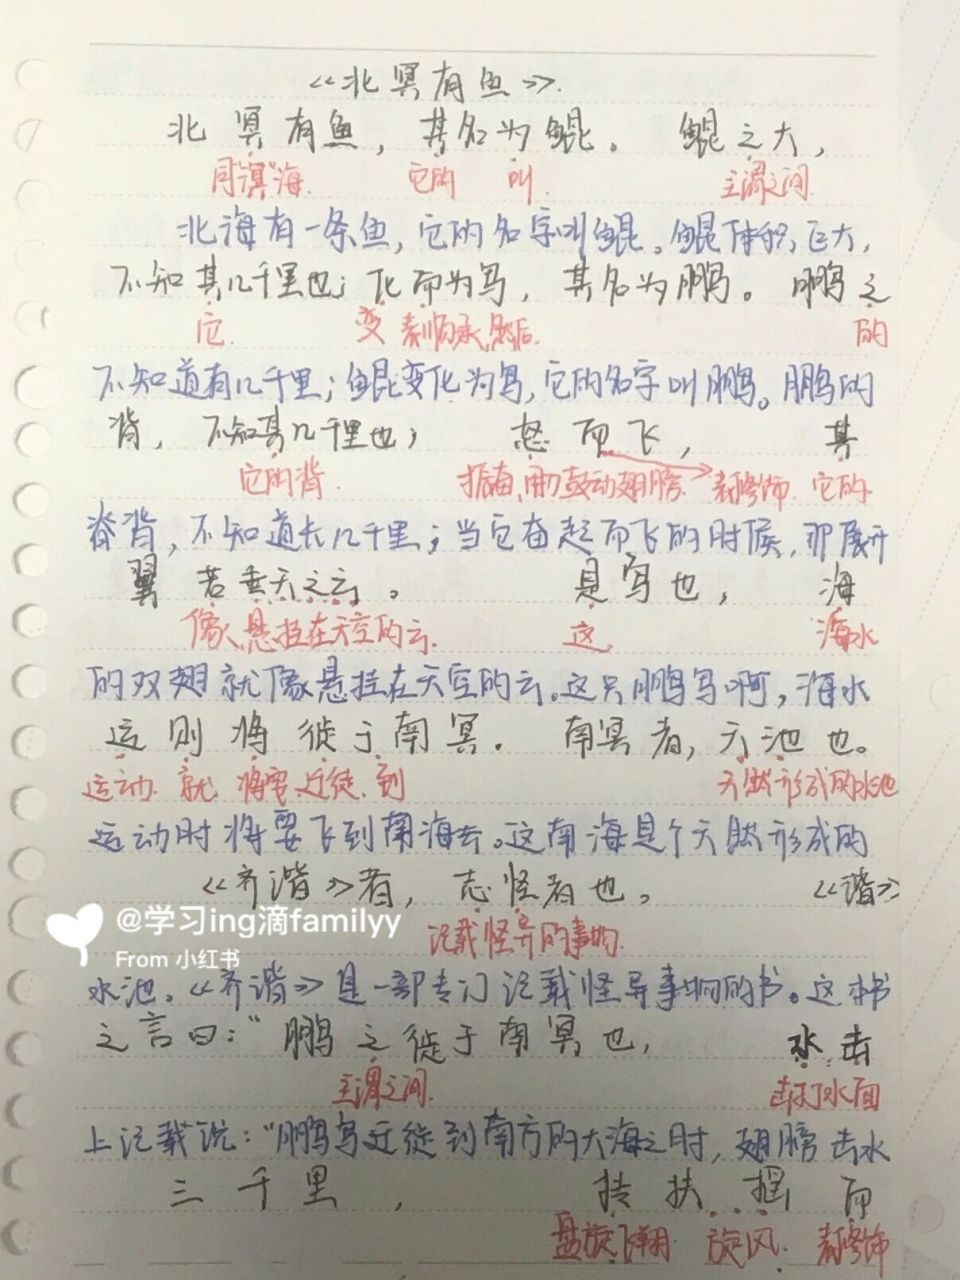 《北冥有鱼》.
北冥有鱼，其名为鲲。鲲之大，
同"溟"海. 它的 叫. 主谓之间.
北海有一条鱼，它的名字叫鲲。鲲体积巨大，
不知其几千里也；化而为鸟，其名为鹏。鹏之
它. 变 表顺承,然后. 的
不知道有几千里；鲲变化为鸟，它的名字叫鹏。鹏的
背，不知其几千里也；怒而飞，其
它的背. 振奋,用力鼓动翅膀. 表修饰 它的
脊背，不知道长几千里；当它奋起而飞的时候，那展开
翼若垂天之云。是鸟也，海
像,悬挂在天空的云. 这. 海水
的双翅就像悬挂在天空的云。这只鹏鸟啊，海水
运则将徙于南冥。南冥者，天池也。
运动. 就. 将要.迁徙.到 天然形成的水池
运动时将要飞到南海去。这南海是个天然形成的
《齐谐》者，志怪者也。《谐》
@学习ing滴familyy
记载怪异的事物.
From 小红书
水池。《齐谐》是一部专门记载怪异事物的书。这本书
之言曰："鹏之徙于南冥也，水击
主谓之间. 击打水面
上记载说："鹏鸟迁徙到南方的大海之时，翅膀击水
三千里，抟扶摇而
盘旋飞翔. 旋风. 表修饰